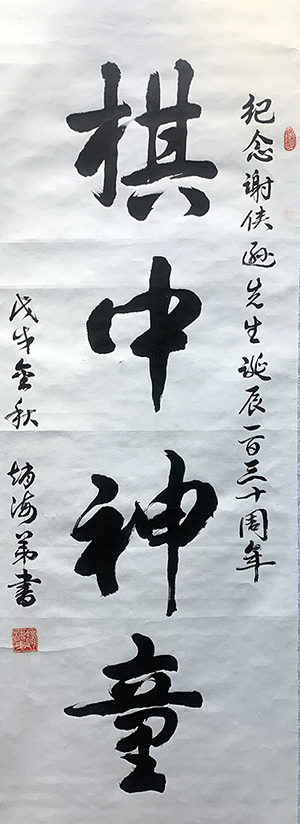 纪念谢侠逊先生诞辰一百三十周年
棋中神童
戊戌金秋 赵海第书